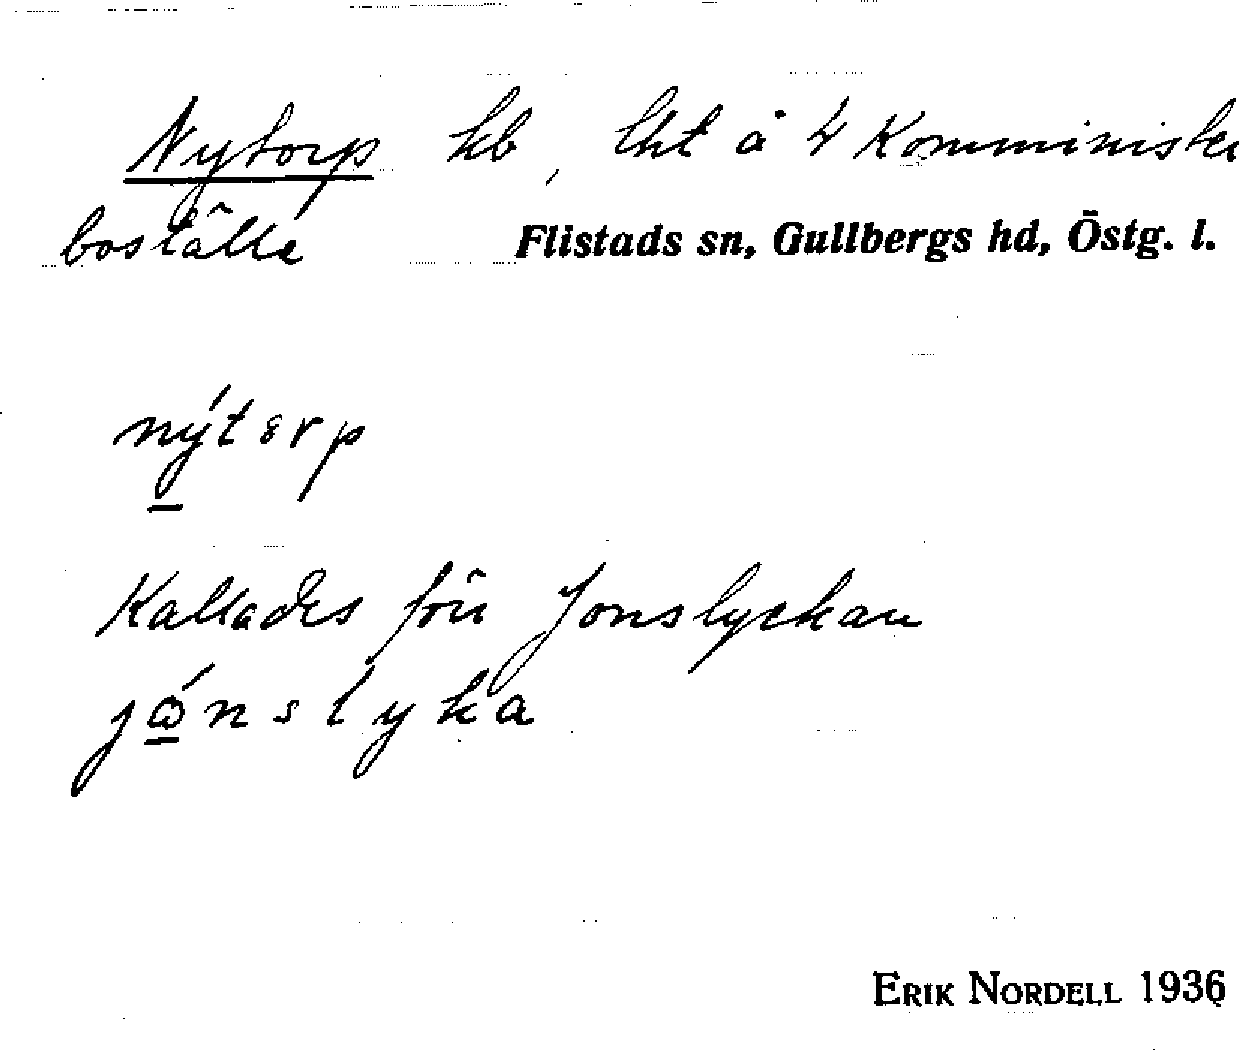 Nytorp hb, lht å ½ Komministe
boställe
Flistads sn, Gullbergs hd, Östg. l.
nýtɞrp
Kallades förr Jonslyckan
jǿnslyka
ERIK NORDELL 1936